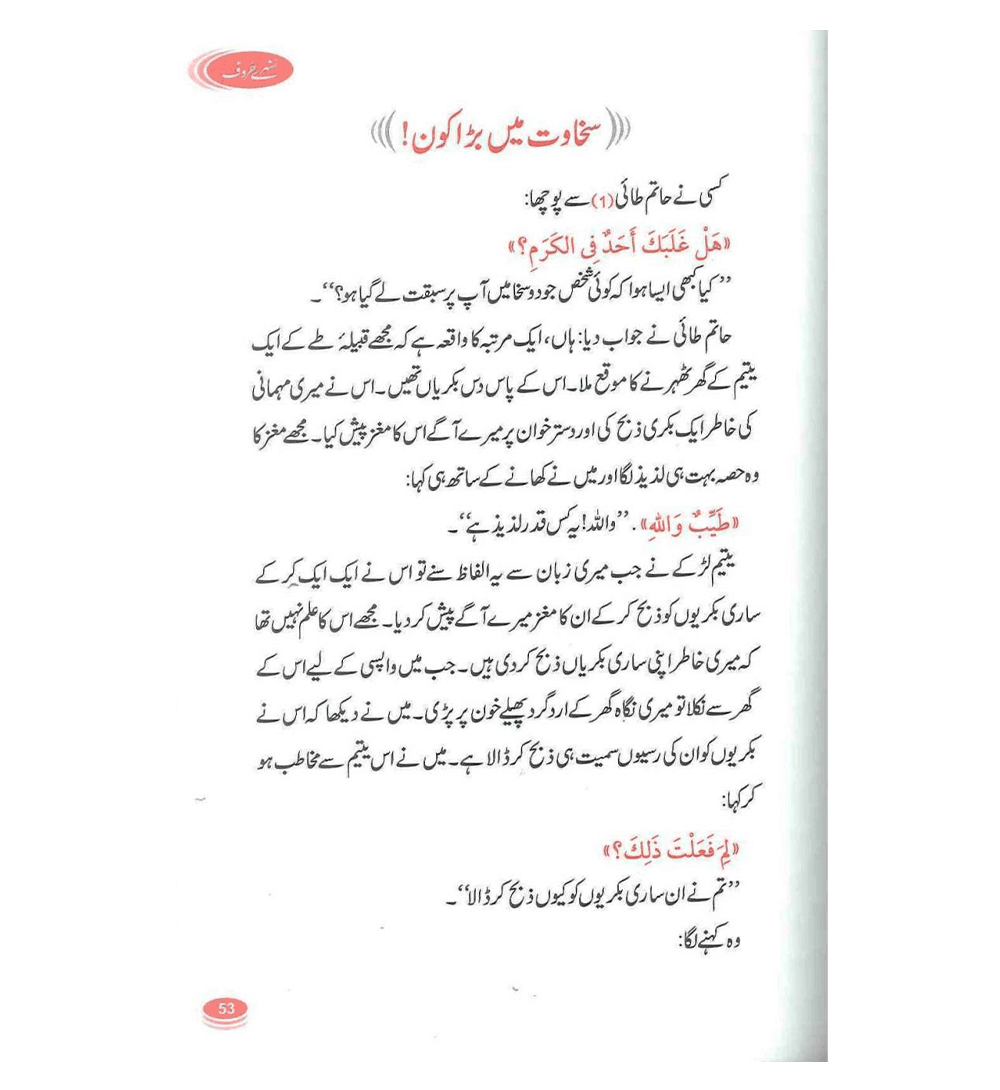 سنہرے حروف
سخاوت میں بڑا کون!
کسی نے حاتم طائی(1) سے پوچھا:
«هَلْ غَلَبَكَ أَحَدٌ فِي الكَرَمِ؟»
’’کیا کبھی ایسا ہوا کہ کوئی شخص جود و سخا میں آپ پر سبقت لے گیا ہو؟‘‘۔
حاتم طائی نے جواب دیا: ہاں، ایک مرتبہ کا واقعہ ہے کہ مجھے قبیلۂ طے کے ایک
یتیم کے گھر ٹھہرنے کا موقع ملا۔ اس کے پاس دس بکریاں تھیں۔ اس نے میری مہمانی
کی خاطر ایک بکری ذبح کی اور دسترخوان پر میرے آگے اس کا مغز پیش کیا۔ مجھے مغز کا
وہ حصہ بہت ہی لذیذ لگا اور میں نے کھانے کے ساتھ ہی کہا:
«طَيِّبٌ وَاللهِ». ’’واللہ! یہ کس قدر لذیذ ہے‘‘۔
یتیم لڑکے نے جب میری زبان سے یہ الفاظ سنے تو اس نے ایک ایک کر کے
ساری بکریوں کو ذبح کر کے ان کا مغز میرے آگے پیش کر دیا۔ مجھے اس کا علم نہیں تھا
کہ میری خاطر اپنی ساری بکریاں ذبح کر دی ہیں۔ جب میں واپسی کے لیے اس کے
گھر سے نکلا تو میری نگاہ گھر کے ارد گرد پھیلے خون پر پڑی۔ میں نے دیکھا کہ اس نے
بکریوں کو ان کی رسیوں سمیت ہی ذبح کر ڈالا ہے۔ میں نے اس یتیم سے مخاطب ہو
کر کہا:
«لِمَ فَعَلْتَ ذَلِكَ؟»
’’تم نے ان ساری بکریوں کو کیوں ذبح کر ڈالا‘‘۔
وہ کہنے لگا:
53